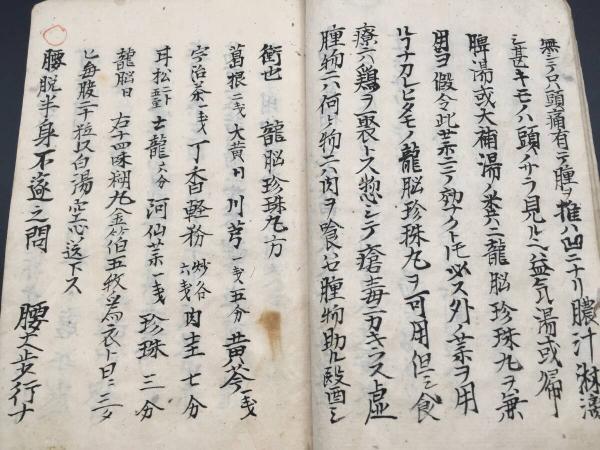 無シテ只頭痛有テ腫ヲ推ハ凹ニナリ膿汁淋滴
シ甚キモノハ頭ノサラ見ルヘ益気湯或帰
脾湯或大補湯ノ類ニ龍脳珍珠丸ヲ無
用ヲ假令此薬ニテ効ナクトモ必ス外ノ薬ヲ用
ルヿナカレヒタモノ龍脳珍珠丸ヲ可用但シ食
療ハ鶏ヲ最トス惣シテ瘡毒ニカキラス上虚
腫物ニハ何ノ物ニハ肉ヲ喰ハ腫物助ル殴西シ
衛也 龍脳珍珠丸方
葛根二戔大黄日川芎一戔五分黄芩戔
宇治茶一戔丁香軽粉炒各六戔肉圭七分
耳松土龍六分阿仙茶一戔珍珠三分
龍脳日右十四味糊丸金箔五枚為衣ト曰ニ三
ヒ毎服二十粒以白湯空心送下ス
腰脱半身不遂之問 腰丈歩行ナ